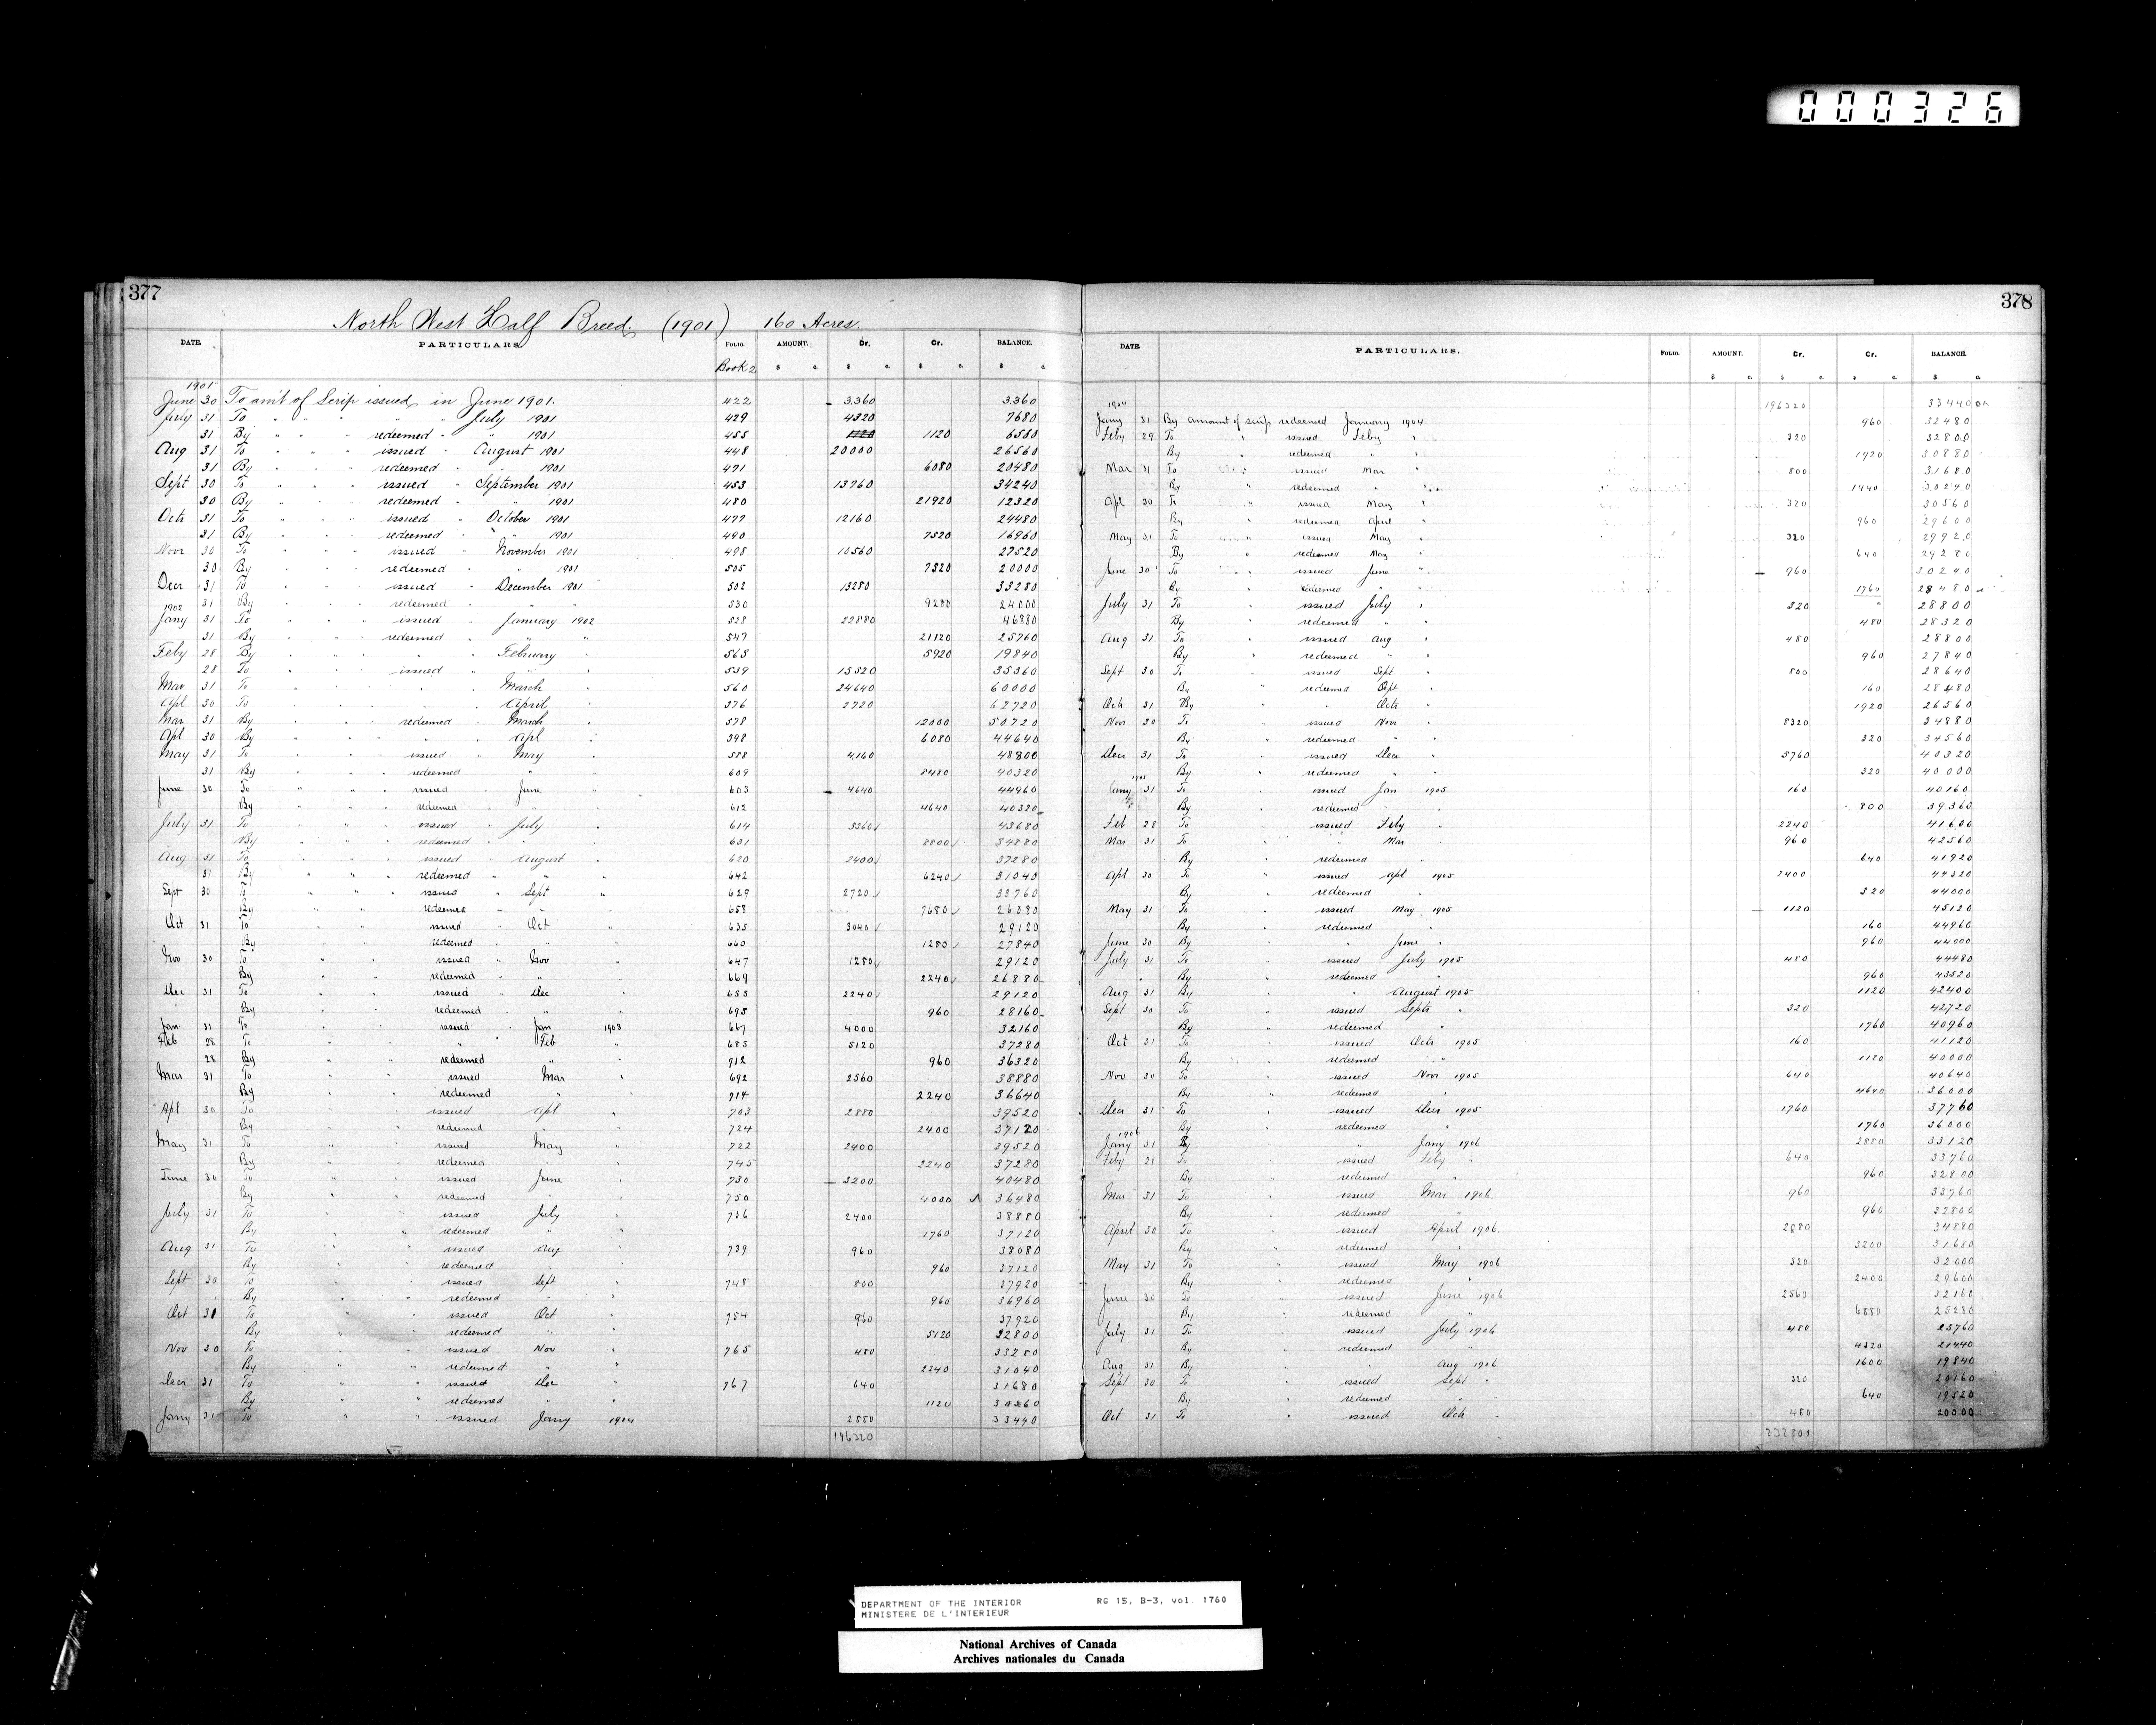 000326
377
North West Half Breed. (1901) 160 Acres.
DATE. PARTICULARS. FOLIO. AMOUNT. Dr. Cr. BALANCE.
Book 2 $ c. $ c. $ c. $ c.
1901
June 30 To amt of Scrip issued in June 1901. 422 3360 3360
July 31 To " " " " " July 1901 429 4320 7680
31 By " " " redeemed " " 1901 455 1120 1120 6560
Aug 31 To " " " issued " August 1901 448 20000 26560
31 By " " " redeemed " " 1901 471 6080 20480
Sept 30 To " " " issued " September 1901 453 13760 34240
30 By " " " redeemed " " 1901 480 21920 12320
Octr 31 To " " " issued " October 1901 477 12160 24480
31 By " " " redeemed " " 1901 490 7520 16960
Novr 30 To " " " issued " November 1901 498 10560 27520
30 By " " " redeemed " " 1901 505 7520 20000
Decr 31 To " " " issued " December 1901 502 13280 33280
31 By " " " redeemed " " " 530 9280 24000
1902
Jany 31 To " " " issued " January 1902 528 22880 46880
31 By " " " redeemed " " " 547 21120 25760
Feby 28 By " " " " " February " 563 5920 19840
28 To " " " issued " " " 539 15520 35360
Mar 31 To " " " " " March " 560 24640 60000
Apl 30 To " " " " " April " 576 2720 62720
Mar 31 By " " " redeemed " March " 578 12000 50720
Apl 30 By " " " " " Apl " 598 6080 44640
May 31 To " " " issued " May " 588 4160 48800
31 By " " " redeemed " " " 609 8480 40320
June 30 To " " " issued " June " 603 4640 44960
By " " " redeemed " " " 612 4640 40320
July 31 To " " " issued " July " 614 3360 43680
By " " " redeemed " " " 631 8800 34880
Aug 31 To " " " issued " August " 620 2400 37280
31 By " " " redeemed " " " 642 6240 31040
Sept 30 To " " " issued " Sept " 629 2720 33760
By " " redeemed " " 658 7680 26080
Oct 31 To " " issued " Oct " 635 3040 29120
By " " redeemed " " " 660 1280 27840
Nov 30 To " " issued " Nov " 647 1280 29120
By " " redeemed " " " 669 2240 26880
Dec 31 To " " issued " Dec " 653 2240 29120
By " " redeemed " " " 695 960 28160
Jan 31 To " " issued " Jan 1903 667 4000 32160
Feb 28 To " " " Feb " 685 5120 37280
28 By " " redeemed " " 712 960 36320
Mar 31 To " " issued Mar " 692 2560 38880
By " " redeemed " " 714 2240 36640
Apl 30 To " " issued Apl " 703 2880 39520
By " " redeemed " " 724 2400 37120
May 31 To " " issued May " 722 2400 39520
By " " redeemed " " 745 2240 37280
June 30 To " " issued June " 730 3200 40480
By " " redeemed " " 750 4000 36480
July 31 To " " issued July " 736 2400 38880
By " " redeemed " " 1760 37120
Aug 31 To " " issued Aug " 739 960 38080
By " " redeemed " " 960 37120
Sept 30 To " " issued Sept " 748 800 37920
By " " redeemed " " 960 36960
Oct 31 To " " issued Oct " 754 960 37920
By " " redeemed " " 5120 32800
Nov 30 To " " issued Nov " 765 480 33280
By " " redeemed " " 2240 31040
Decr 31 To " " issued Dec " 767 640 31680
By " " redeemed " " 1120 30560
Jany 31 To " " issued Jany 1904 2880 33440
196320
378
DATE. PARTICULARS. FOLIO. AMOUNT. Dr. Cr. BALANCE.
$ c. $ c. $ c. $ c.
1904 196320 33440
Jany 31 By amount of scrip redeemed January 1904 960 32480
Feby 29 To " issued Feby " 320 32800
By " redeemed " " 1920 30880
Mar 31 To issued Mar " 800 31680
By " redeemed " " 1440 30240
Apl 30 To " issued May " 320 30560
By " redeemed April " 960 29600
May 31 To issued May " 320 29920
By " redeemed May " 640 29280
June 30 To " issued June " 960 30240
By " redeemed " 1760 28480
July 31 To " issued July " 320 28800
By " redeemed " " 480 28320
Aug 31 To " issued Aug " 480 28800
By " redeemed " " 960 27840
Sept 30 To " issued Sept " 800 28640
By " redeemed Sept " 160 28480
Oct 31 By " " Octr " 1920 26560
Nov 30 To " issued Novr " 8320 34880
By " redeemed " " 320 34560
Decr 31 To " issued Decr " 5760 40320
By " redeemed " " 320 40000
1905
Jany 31 To " issued Jan 1905 160 40160
By " redeemed " 800 39360
Feb 28 To " issued Feby " 2240 41600
Mar 31 To " " Mar " 960 42560
By " redeemed " 640 41920
Apl 30 To " issued Apl 1905 2400 44320
By " redeemed " 320 44000
May 31 To " issued May 1905 1120 45120
By " redeemed " 160 44960
June 30 By " " June " 960 44000
July 31 To " issued July 1905 480 44480
By " redeemed " 960 43520
Aug 31 By " " August 1905 1120 42400
Sept 30 To " issued Septr " 320 42720
By " redeemed " 1760 40960
Oct 31 To " issued Octr 1905 160 41120
By " redeemed " 1120 40000
Nov 30 To " issued Novr 1905 640 40640
By " redeemed " 4640 36000
Decr 31 To " issued Decr 1905 1760 37760
By " redeemed " 1760 36000
1906
Jany 31 By " " Jany 1906 2880 33120
Feby 21 To " issued Feby " 640 33760
By " redeemed " 960 32800
Mar 31 To " issued Mar 1906. 960 33760
By " redeemed " 960 32800
April 30 To " issued April 1906. 2080 34880
By " redeemed " 3200 31680
May 31 To " issued May 1906 320 32000
By " redeemed " 2400 29600
June 30 To " issued June 1906. 2560 32160
By " redeemed " 6880 25280
July 31 To " issued July 1906 480 25760
By " redeemed " 4320 21440
Aug 31 By " " Aug 1906 1600 19840
Sept 30 To " issued Sept " 320 20160
By " redeemed " " 640 19520
Oct 31 To " issued Octr " 480 20000
232800
DEPARTMENT OF THE INTERIOR RG 15, B-3, vol. 1760
MINISTERE DE L'INTERIEUR
National Archives of Canada
Archives nationales du Canada